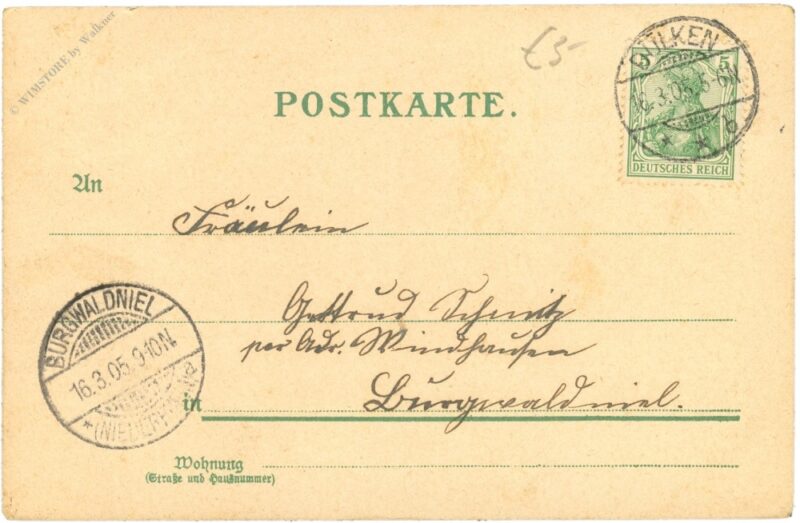 © WIMSTORE by Walkner
£5-
POSTKARTE.
DÜLKEN
16.3.05. 5-6N
* * b
5
DEUTSCHES REICH
An
Fräulein
Gertrud Schmitz
per Adr. Windhausen
in Burgwaldniel.
BURGWALDNIEL
16.3.05. 9-10N.
* (NIEDERRH.)
Wohnung
(Straße und Hausnummer)